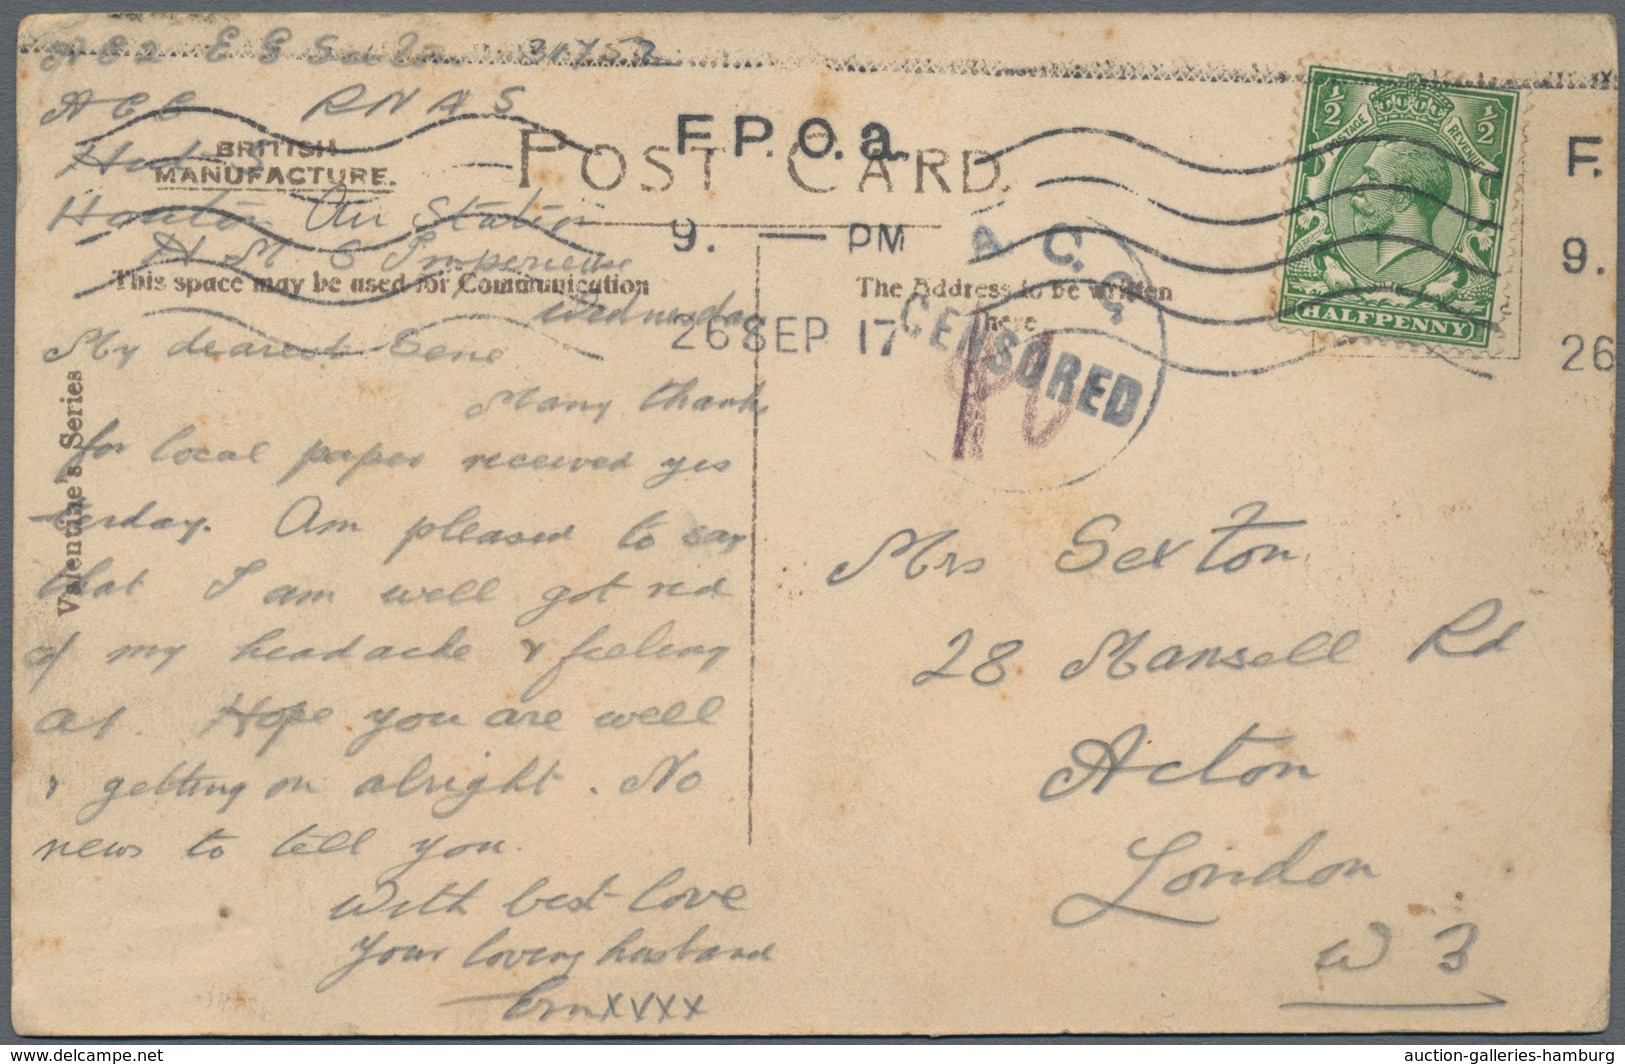 E G Sexton 31752
RNAS
BRITISH
MANUFACTURE.
POST CARD
F.P.O.a.
F.
Houton Air Station
H M S Imperieuse
9. — PM
9.
A C. G
This space may be used for Communication
The Address to be written
here
Wednesday
26 SEP 17
26
CENSORED
HALFPENNY
POSTAGE
REVENUE
½
½
Valentine's Series
My dearest Gene
Many thanks
for local paper received yes
terday. Am pleased to say
that I am well got rid
of my headache & feeling
A1. Hope you are well
& getting on alright. No
news to tell you.
With best love
Your loving husband
Ern xvxx
Mrs Sexton
28 Mansell Rd
Acton
London
W 3
auction-galleries-hamburg
www.delcampe.net